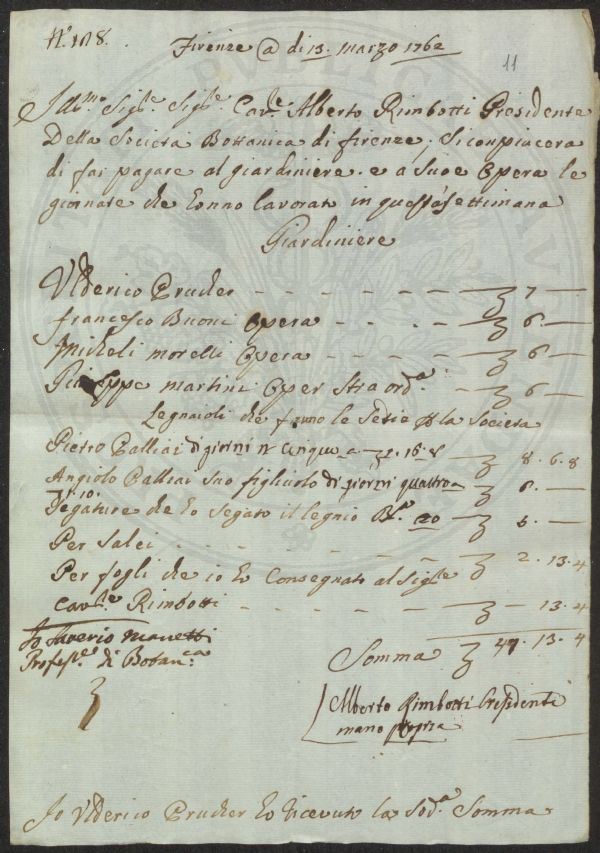 N.º 108.
Firenze @ di 13. marzo 1762
11
Ill.mo Sig.re Sig.re Cav.re Alberto Rimbotti Presidente
Della Società Bottanica di firenze, Si conpiacera
di far pagare al giardiniere. e a Suoe Opera le
giornate che Eonno lavorato in questa settimana
Giardiniere
Ulderico Prucher - - - - - - - 7 —
francesco Buoni Opera - - - - 6 —
Micheli morelli Opera - - - - 6 —
Giuseppe martini Oper Stra ord.a - 6 —
Legnaioli che fanno le Sedie la Societa
Pietro Palliai di giorni n cinque a 1. 16. 8 8. 6. 8
Angiolo Palliai suo figliuolo di giorni quattro 6. —
Segature che Eo Segato il legnio 20 5. —
Per Salci 2. 13. 4
Per fogli che io Eo Consegnato al Sig.re
Cav.re Rimbotti - - - - — 13. 4
Somma 47. 13. 4
Io Saverio Manetti
Profess.re di Botan.ca
Alberto Rimbotti Presidente
mano propria
Io Ulderico Prucher Eo Ricevuto la Sod.a Somma